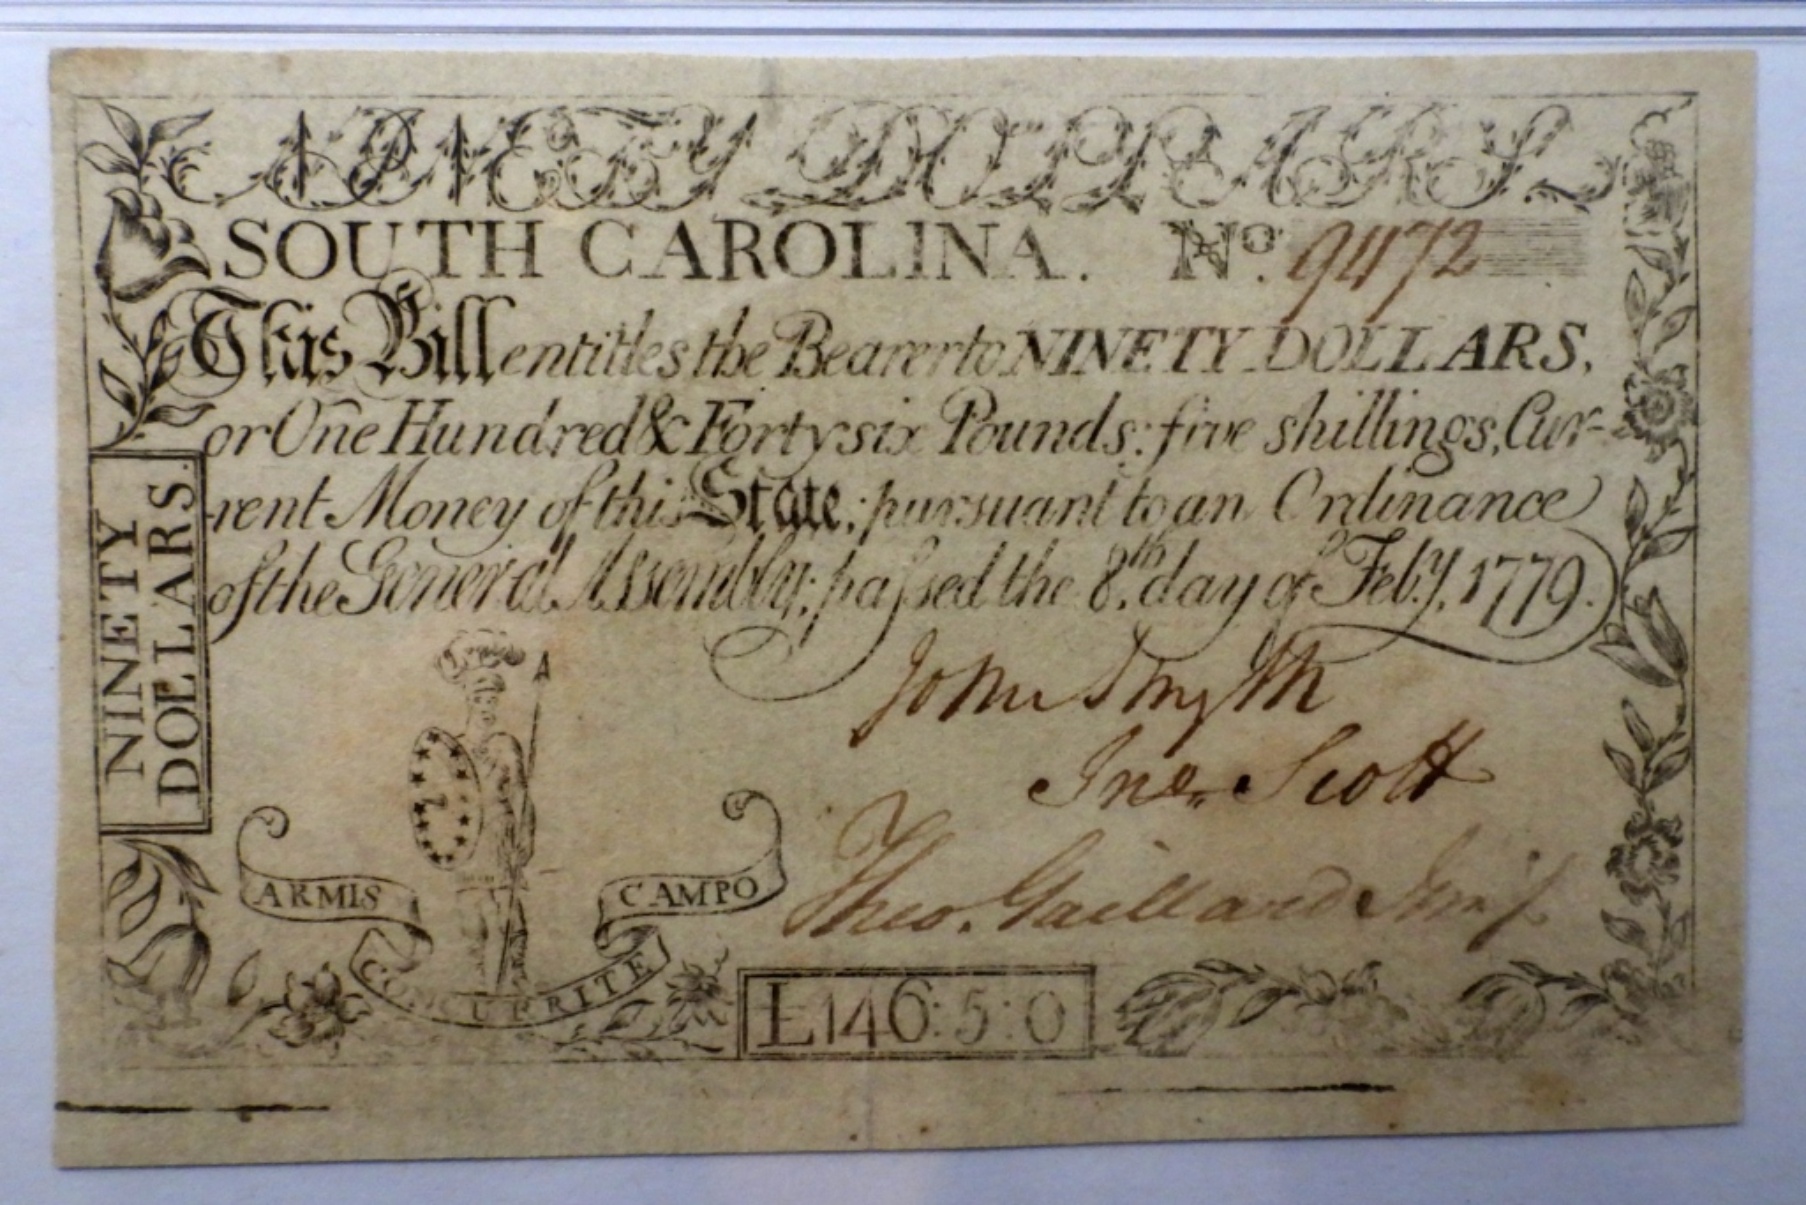 NINETY DOLLARS.
SOUTH CAROLINA. No. 9472
This Bill entitles the Bearer to NINETY DOLLARS,
or One Hundred & Forty six Pounds: five shillings, Cur-
rent Money of this State; pursuant to an Ordinance
of the General Assembly; passed the 8th day of Feby. 1779.
NINETY
DOLLARS.
John Smyth
Jno. Scott
Theo. Gaillard Junr
ARMIS CAMPO
CONCURRITE
£146:5:0